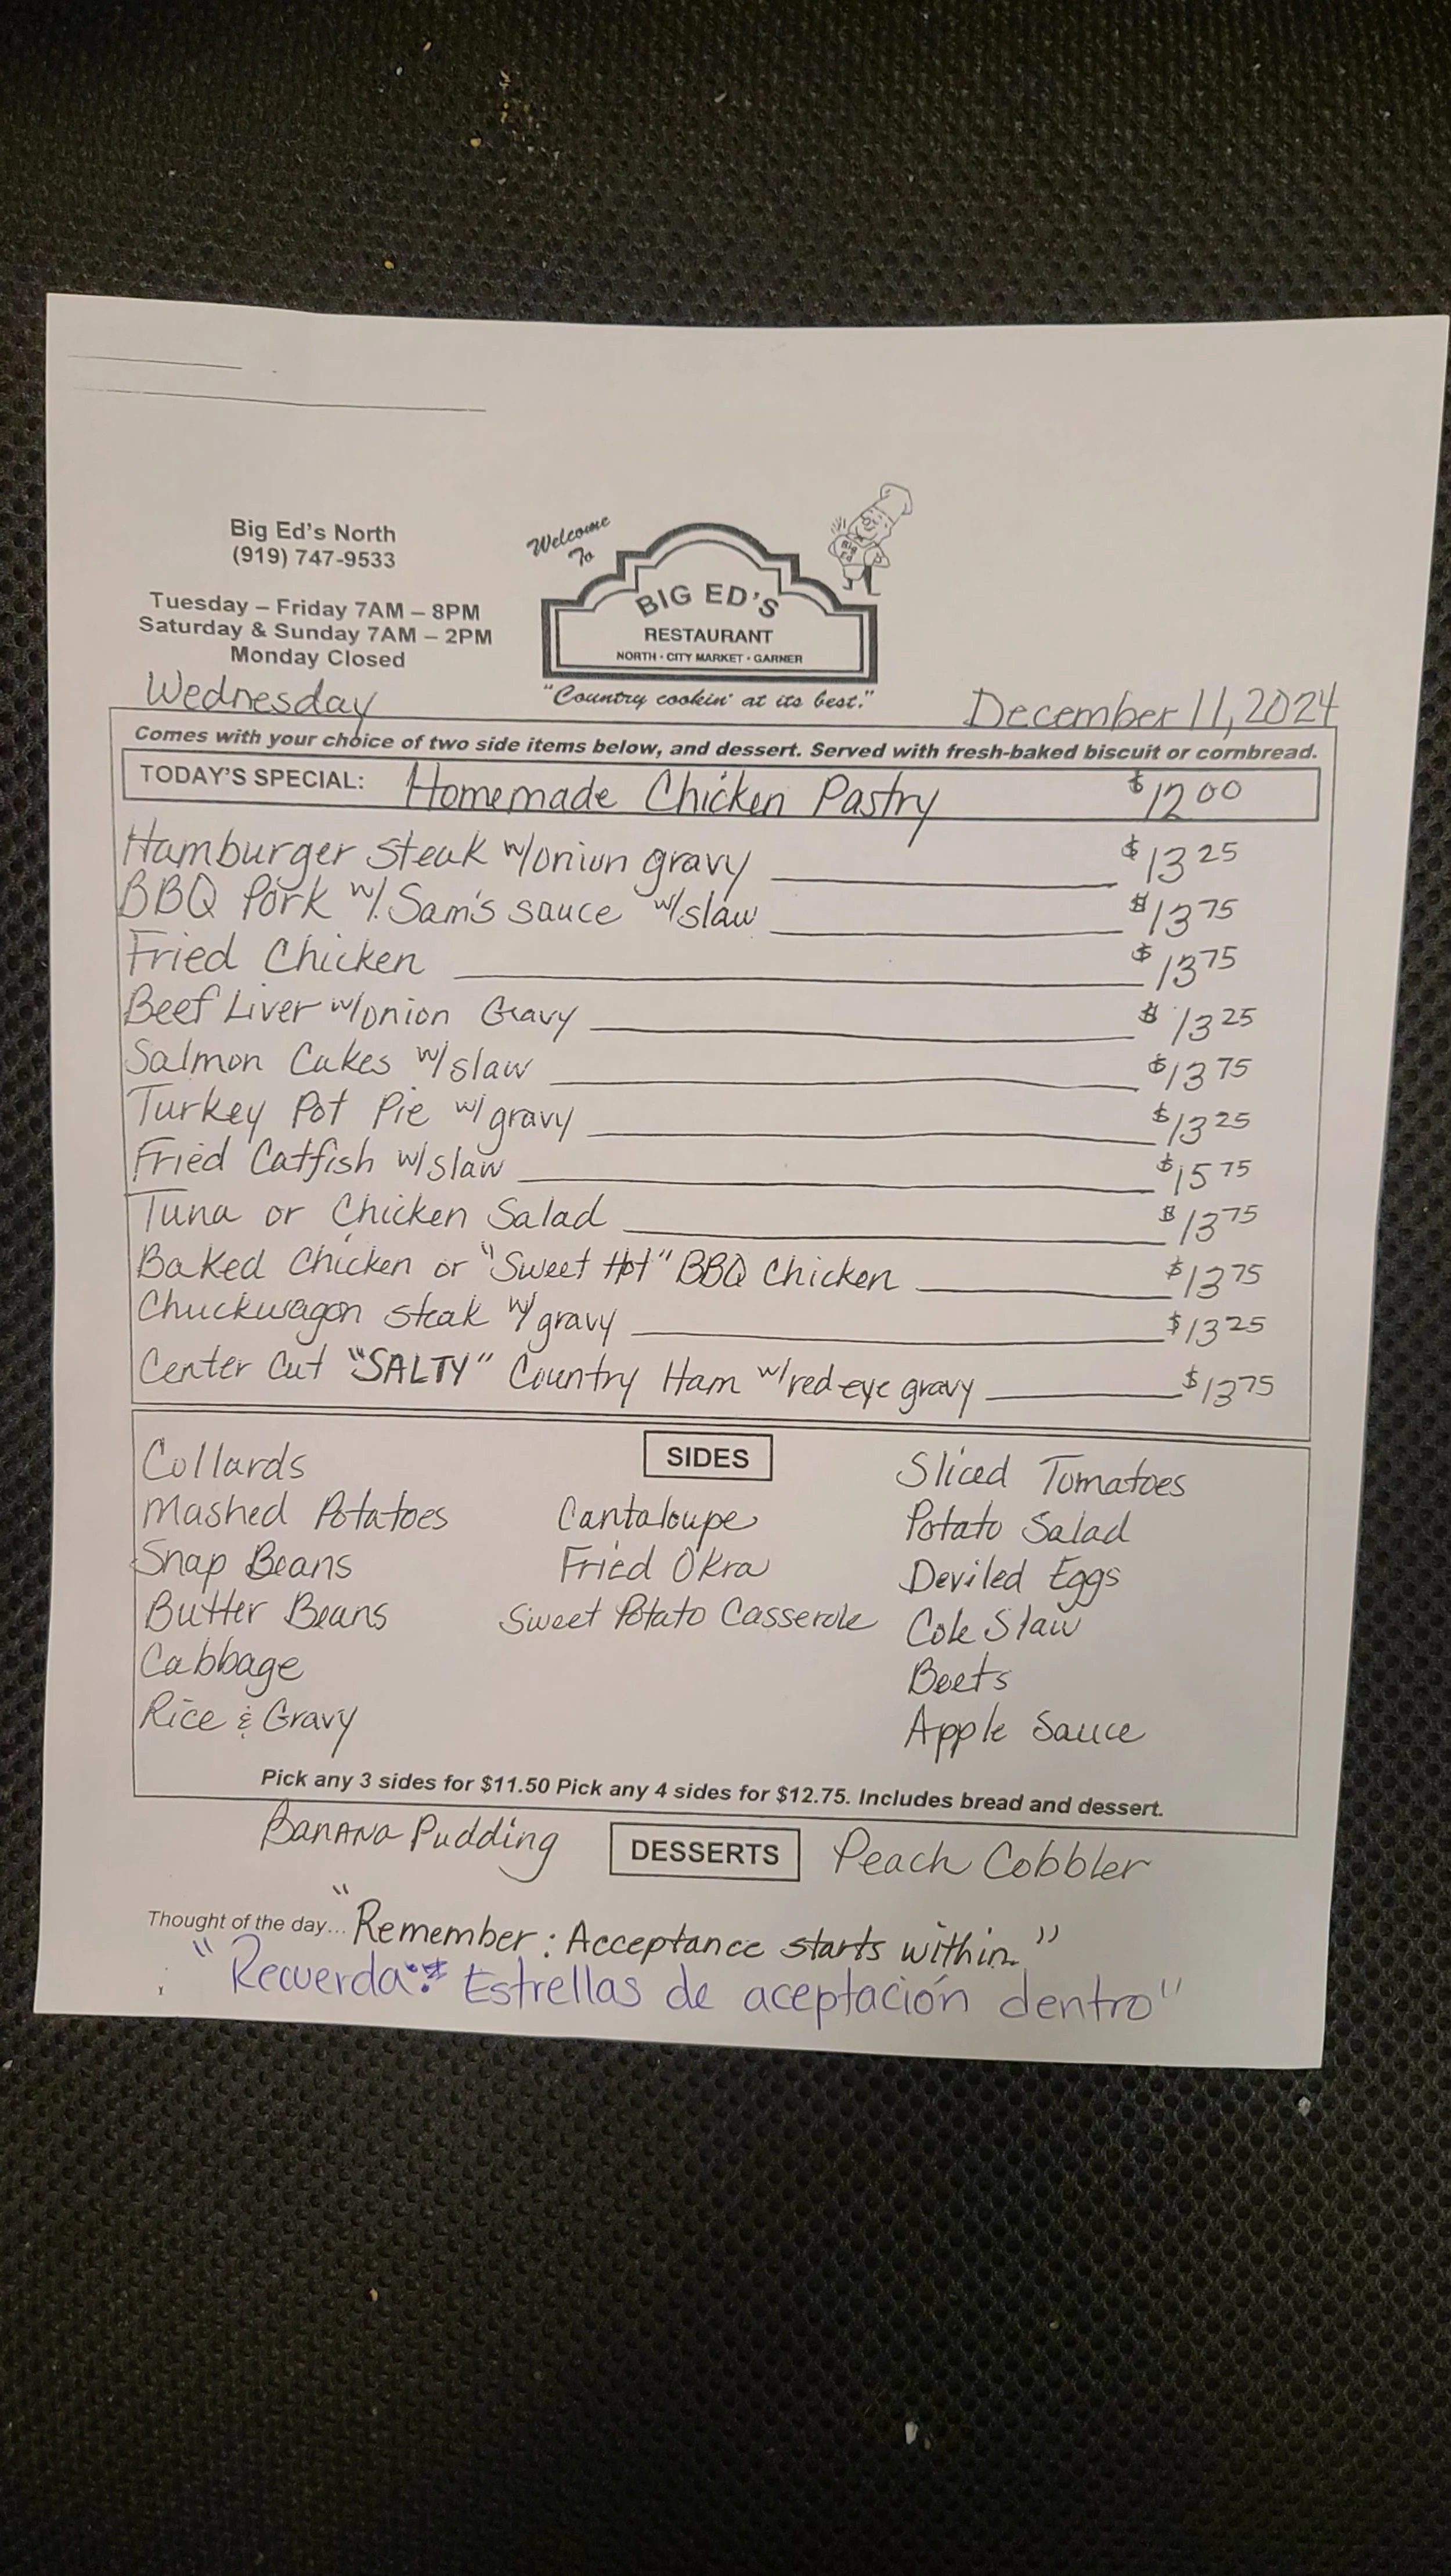 Big Ed's North
(919) 747-9533
Tuesday – Friday 7AM – 8PM
Saturday & Sunday 7AM – 2PM
Monday Closed
Welcome
To
BIG ED'S
RESTAURANT
NORTH · CITY MARKET · GARNER
"Country cookin' at its best."
Big Ed
Wednesday
December 11, 2024
Comes with your choice of two side items below, and dessert. Served with fresh-baked biscuit or cornbread.
TODAY'S SPECIAL: Homemade Chicken Pastry $12 00
Hamburger steak w/onion gravy $13 25
BBQ Pork w/. Sam's sauce w/slaw $13 75
Fried Chicken $13 75
Beef Liver w/onion Gravy $13 25
Salmon Cakes w/slaw $13 75
Turkey Pot Pie w/ gravy $13 25
Fried Catfish w/slaw $15 75
Tuna or Chicken Salad $13 75
Baked Chicken or "Sweet Hot" BBQ Chicken $13 75
Chuckwagon steak w/ gravy $13 25
Center Cut "SALTY" Country Ham w/red eye gravy $13 75
SIDES
Collards
Mashed Potatoes
Snap Beans
Butter Beans
Cabbage
Rice & Gravy
Cantaloupe
Fried Okra
Sweet Potato Casserole
Sliced Tomatoes
Potato Salad
Deviled Eggs
Cole Slaw
Beets
Apple Sauce
Pick any 3 sides for $11.50 Pick any 4 sides for $12.75. Includes bread and dessert.
Banana Pudding DESSERTS Peach Cobbler
Thought of the day... "Remember: Acceptance starts within."
"Recuerda: Estrellas de aceptación dentro"